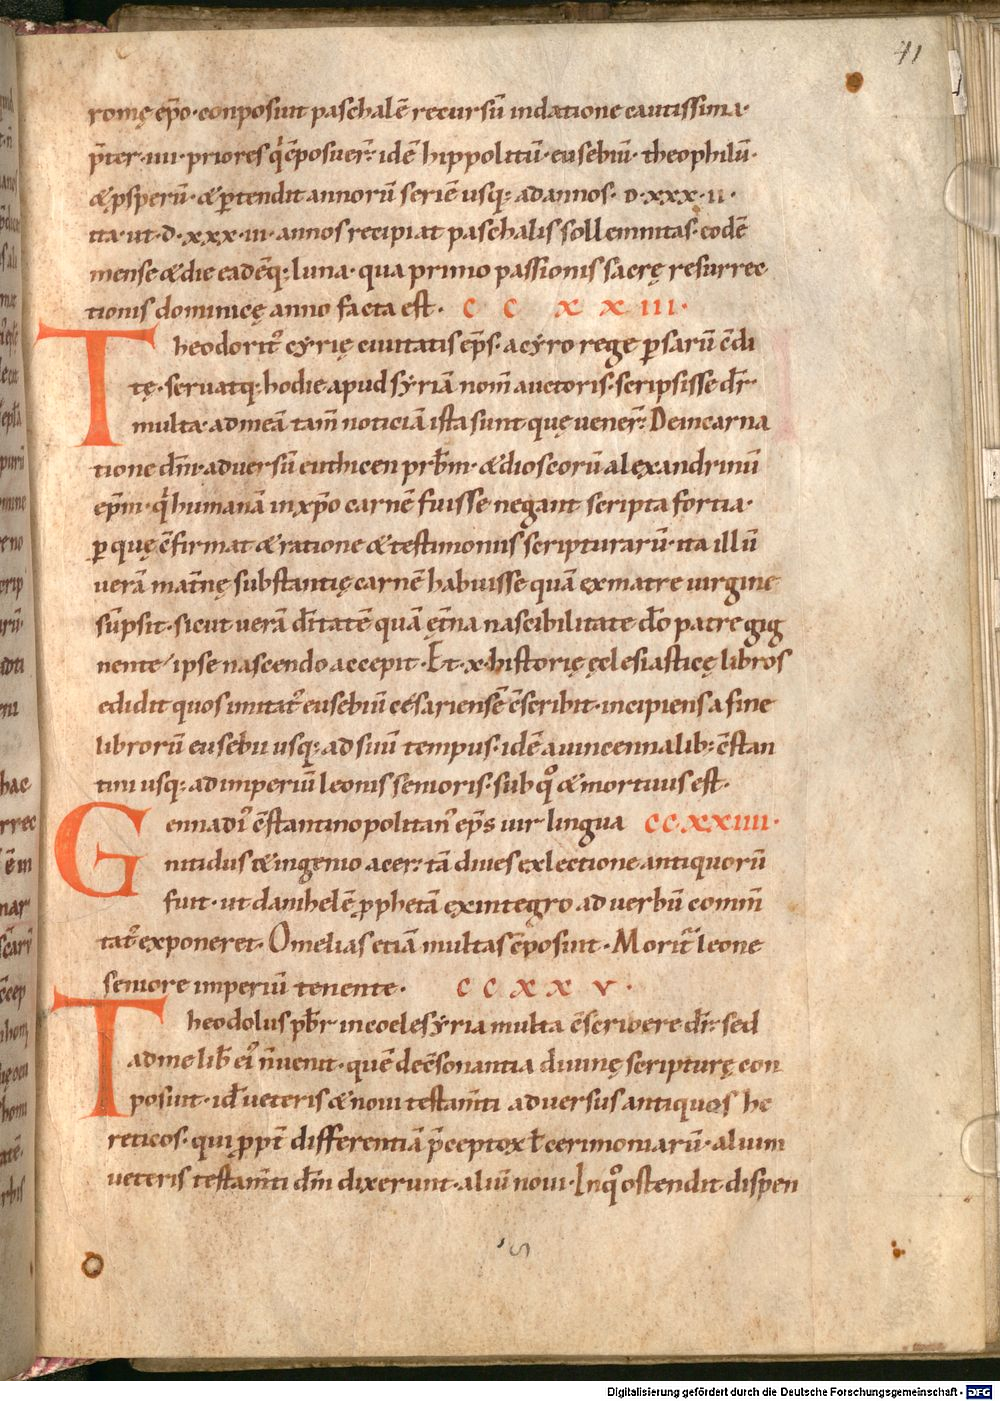 41
romę ep̄o· conposuit paschalē recursū indatione cautissima·
p̄ter· iiii· priores q̄ c̄posuer̄· idē hippolitū· eusebiū· theophilū·
& ꝓsperū· & ꝑtendit annorū seriē usq; ad annos· D·xxx·ii·
ita· ut· D·xxx·iii· annos recipiat paschalis sollemnitas· eodē
mense & die eadēq; luna· qua primo passionis sacrę resurrec
tionis dominicę anno facta est· CCXXIII·
Theodorit᾿ cyrię ciuitatis ep̄s· a cyro rege ꝑsarū c̄di
tę· seruatq; hodie apud syriā nom̄ auctoris· scripsisse dr̄·
multa· ad meā tam̄ noticiā ista sunt quę uener̄· De incarna
tione dn̄i· aduersū euthicen prb̄m· & dioscorū alexandrinū
ep̄m· q̄ humanā in xp̄o carnē fuisse negant scripta fortia·
ꝑ quę c̄firmat & ratione & testimoniis scripturarū· ita illū
uerā mat̄nę substantię carnē habuisse quā ex matre uirgine
sūpsit· sicut uerā dītatē quā ęt̄na nascibilitate dō patre gig
nente ipse nascendo accepit· Et· x· historię ęclesiasticę libros
edidit quos imitat᾿ eusebiū césariensē c̄scribit· incipiens a fine
librorū eusebii usq; ad suū tempus· idē a uincennalib; c̄stan
tini usq; ad imperiū leonis senioris· sub q̊ & mortuus est·
Gennadi᾿ c̄stantinopolitan᾿ ep̄s uir lingua CCXXIIII·
nitidus & ingenio acer· tā diues ex lectione antiquorū
fuit· ut danihelē ꝓphetā ex integro ad uerbū com̄m̄
tat᾿ exponeret· Omelias etiā multas c̄posuit· Morit᾿ leone
seniore imperiū tenente· CCXXV·
Theodolus pb̄r in coelesyria multa c̄scribere dr̄· sed
ad me lib̄ ei᾿ n̄ uenit· quē de c̄sonantia diuinę scripturę con
posuit· id ē ueteris & noui testam̄ti aduersus antiquos he
reticos· qui ꝓpt̄ differentiā p̄ceptoꝝ ł cerimoniarū· aliuim
ueteris testam̄ti dm̄ dixerunt· aliū noui· In q̊ ostendit dispen
Digitalisierung gefördert durch die Deutsche Forschungsgemeinschaft - DFG